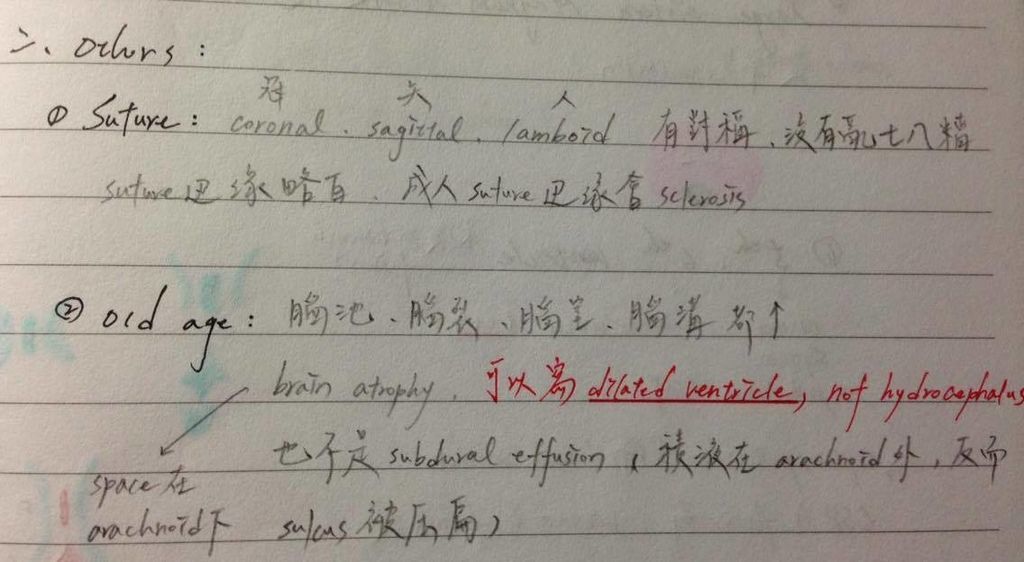 二、Others：
冠 矢 人
① Suture： coronal、sagittal、lamboid 有對稱、沒有亂七八糟
suture邊緣略白、成人suture邊緣會sclerosis
② old age： 腦池、腦裂、腦室、腦溝 都↑
brain atrophy, 可以寫 dilated ventricle, not hydrocephalus
也不是 subdural effusion （積液在 arachnoid 外，反而
space 在
arachnoid下 sulcus 被压扁）